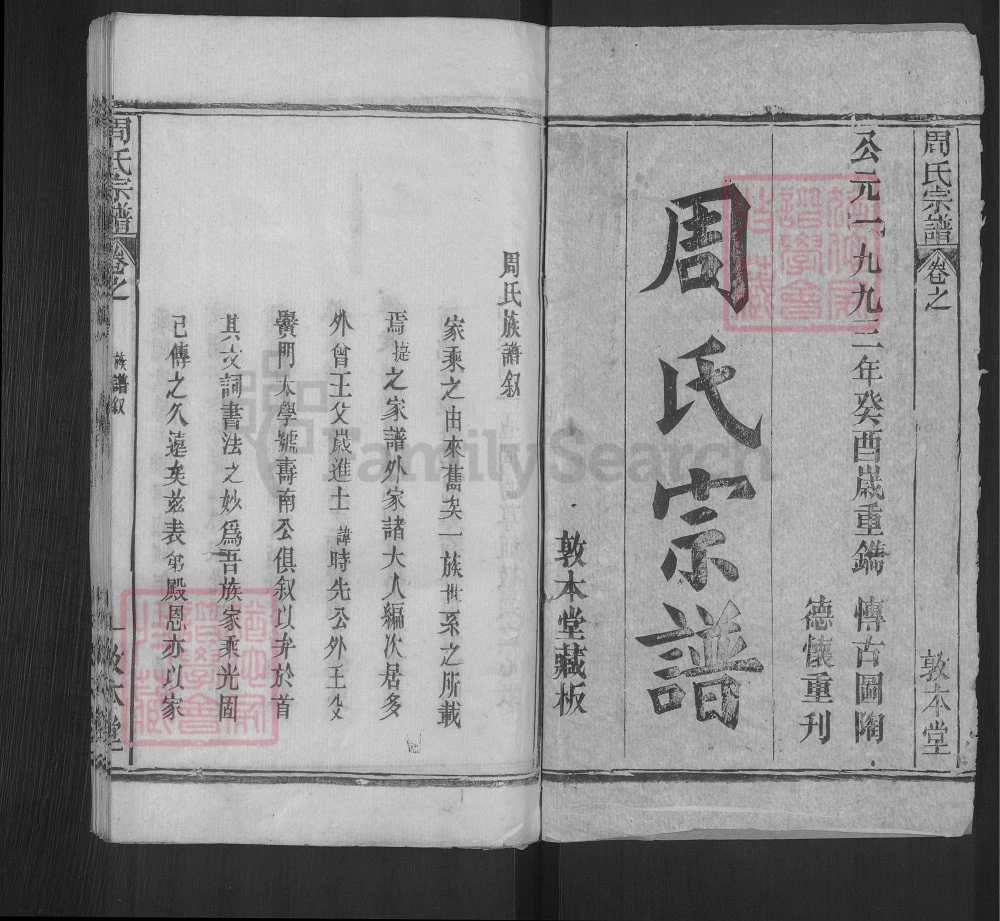 周氏宗譜
卷之
敦本堂
公元一九九三年癸酉歲重鐫 傳古圖陶
德懷重刊
周氏宗譜
敦本堂藏板
周氏族譜叙
家乘之由來舊矣一族世系之所載
焉捷之家譜外家諸大人編次居多
外曾王父歲進士諱時先公外王父
黌門太學號壽南公俱叙以弁於首
其文詞書法之妙爲吾族家乘光固
已傳之久遠矣兹表弟殿恩亦以家
周氏宗譜
卷之
族譜叙
一
敦本堂
FamilySearch